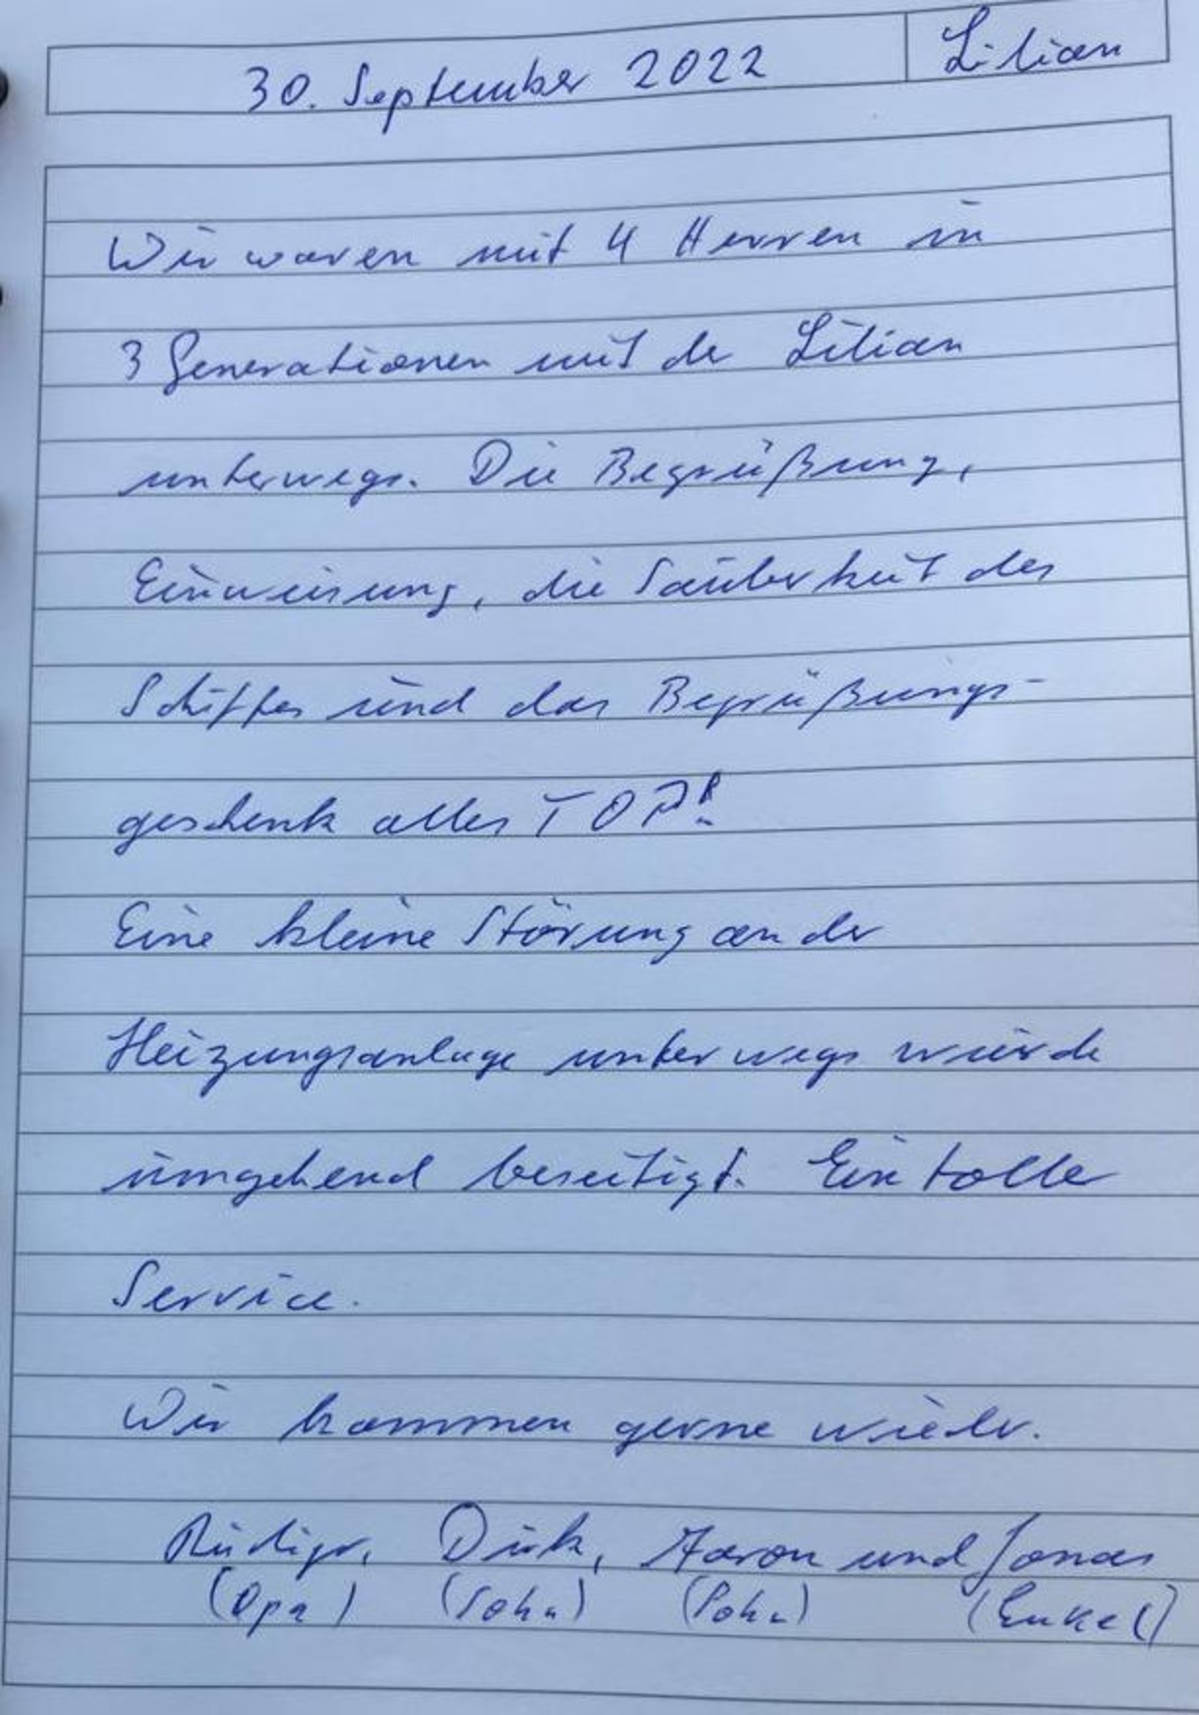 30. September 2022 Lilian
Wir waren mit 4 Herren in
3 Generationen mit der Lilian
unterwegs. Die Begrüßung,
Einweisung, die Sauberkeit des
Schiffes und das Begrüßungs-
geschenk alles TOP!
Eine kleine Störung an der
Heizungsanlage unterwegs wurde
umgehend beseitigt. Ein tolle
Service.
Wir kommen gerne wieder.
Rüdiger, Dirk, Aaron und Jonas
(Opa) (Sohn) (Sohn) (Enkel)